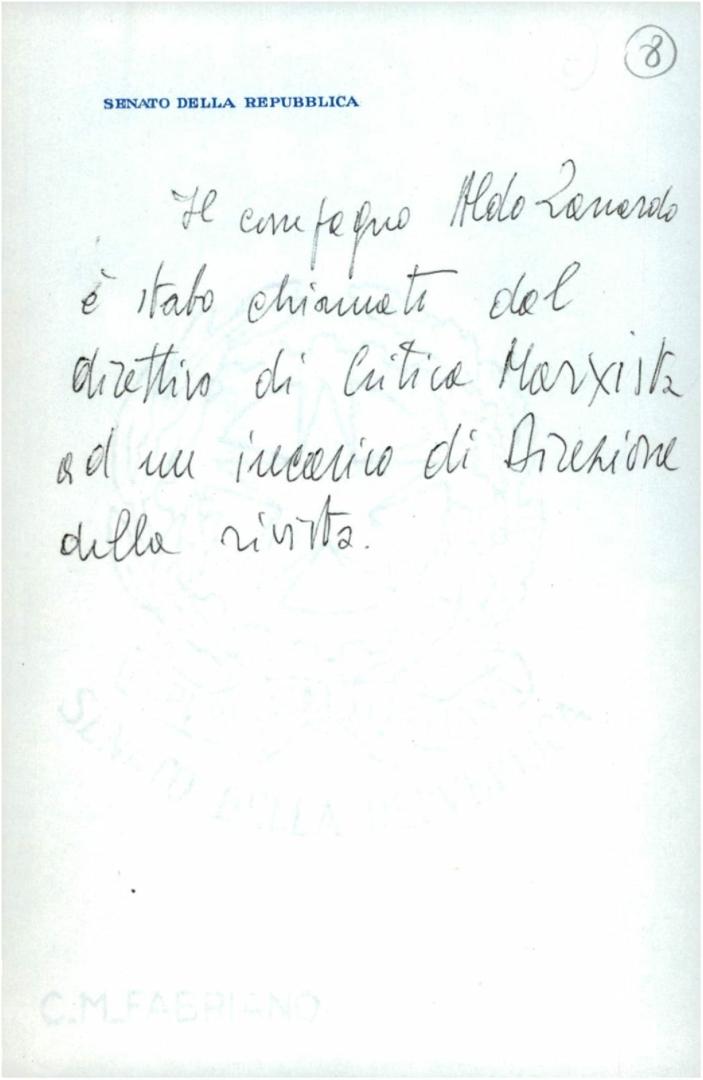 8
SENATO DELLA REPUBBLICA
Il compagno Aldo Zanardo
è stato chiamato dal
direttivo di Critica Marxista
ad un incarico di Direzione
della rivista.
SENATO DELLA REPUBBLICA
C.M. FABRIANO